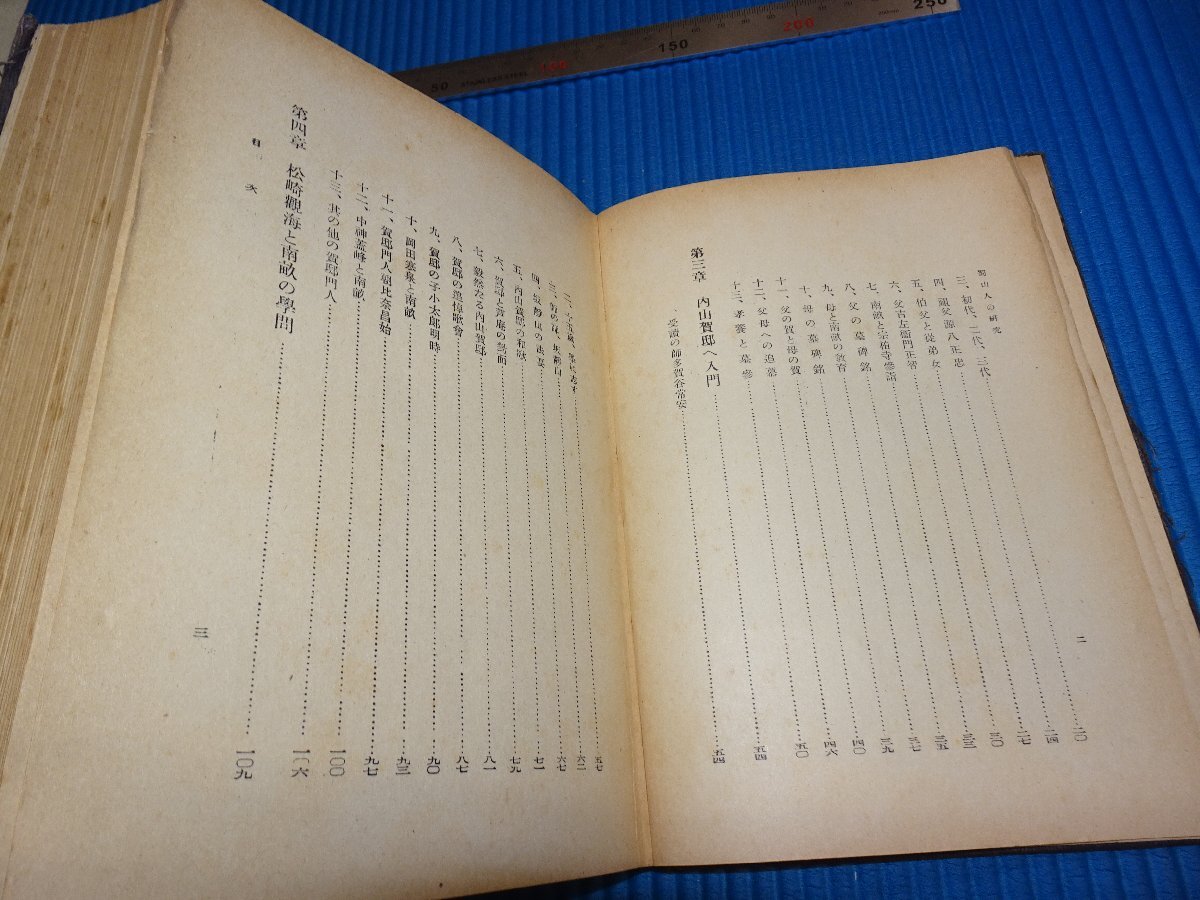 蜀山人の研究
二
三、初代、二代、三代……二〇
四、祖父源八正忠……二四
五、伯父と從弟女……二七
六、父吉左衞門正智……三〇
七、南畝と宗祐寺參詣……三三
八、父の墓碑銘……三五
九、母と南畝の敎育……三七
十、母の墓碑銘……三九
十一、父の賀と母の賀……四〇
十二、父母への追慕……四六
十三、孝養と墓參……五〇
第三章 內山賀邸へ入門……五四
一、受讀の師多賀谷常安……五四
二、十五歲、……五七
三、……六二
四、……六七
五、內山賀邸の和歌……七一
六、賀邸と……七九
七、毅然たる內山賀邸……八一
八、賀邸の追悼歌會……八七
九、賀邸の子小太郎明時……九〇
十、岡田寒泉と南畝……九三
十一、賀邸門人朝比奈昌始……九七
十二、中神蓋峰と南畝……一〇〇
十三、其の他の賀邸門人……一〇六
第四章 松崎觀海と南畝の學問……一〇九
目次
三
50 STAINLESS STEEL 100 150 200 250